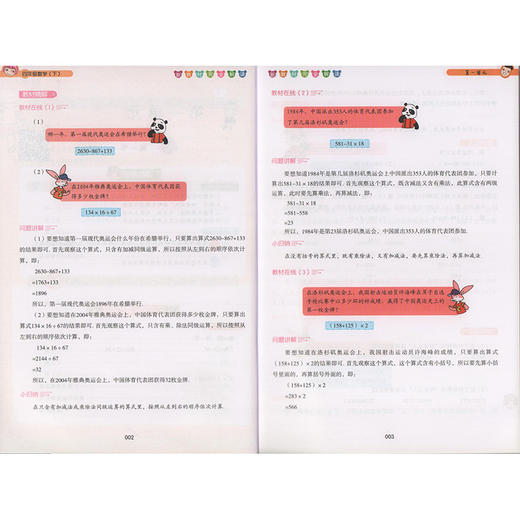 四年级数学（下）
教材精解
教材在线（1）
（1）
哪一年，第一届现代奥运会在希腊举行？
2630-867+133
（2）
在2004年雅典奥运会上，中国体育代表团获
得多少枚金牌？
134×16÷67
问题讲解
（1）要想知道第一届现代奥运会什么年份在希腊举行，只要算出算式2630-867+133
的结果即可。首先观察这个算式，只含有加减同级运算，所以按照从左到右的顺序依次计
算，即：
2630-867+133
=1763+133
=1896
所以，第一届现代奥运会1896年在希腊举行.
（2）要想知道在2004年雅典奥运会上，中国体育代表团获得多少枚金牌，只要算出算
式134×16÷67的结果即可.首先观察这个算式，只含有乘、除法同级运算，所以按照从
左到右的顺序依次计算，即：
134×16÷67
=2144÷67
=32
所以，在2004年雅典奥运会上，中国体育代表团获得32枚金牌.
小归纳
在只含有加减法或乘除法同级运算的算式里，按照从左到右的顺序依次计算.
002
第一单元
教材在线（2）
1984年，中国派出353人的体育代表团参加
了第几届洛杉矶奥运会？
581-31×18
问题讲解
要想知道1984年是第几届洛杉矶奥运会上，中国派出353人的体育代表团参加，只要计
算出581-31×18的结果即可.首先观察这个算式，既含减法又含有乘法，此算式含有两级
运算，此时要先算乘法，再算减法，即：
581-31×18
=581-558
=23
所以，1984年是第23届洛杉矶奥运会，中国派出353人的体育代表团参加.
小归纳
在没有括号的算式里，既有乘除法，又有加减法，要先算乘除法，再算加减法.
教材在线（3）
在洛杉矶奥运会上，我国射击运动员许海峰在男子自选
手枪比赛中以多少环的好成绩，赢得了中国奥运史上的
第一枚金牌？
（158+125）×2
问题讲解
要想知道在洛杉矶奥运会上，我国射击运动员许海峰的成绩，只要算出算式
（158+125）×2的结果即可.首先观察这个算式，这个算式含有小括号，所以要先算小括
号里面的，再算括号外面的，即：
（158+125）×2
=283×2
=566
003